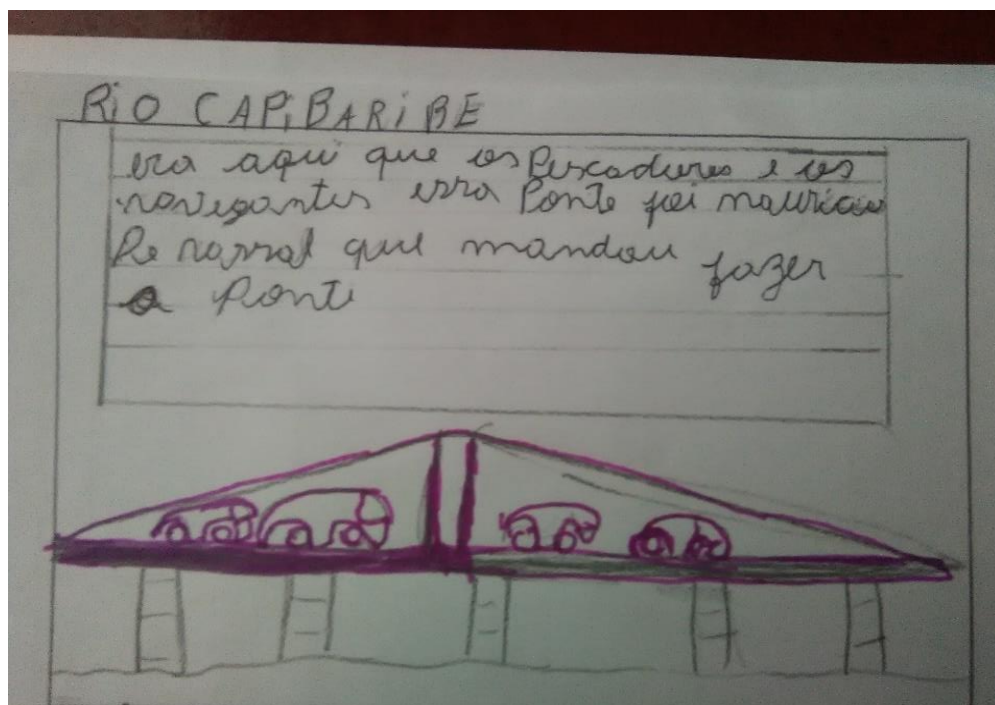 RiO CAPiBARiBE
era aqui que os Pescadores e os
navegantes essa Ponte foi mauricio
De nassal que mandou fazer
a Ponte